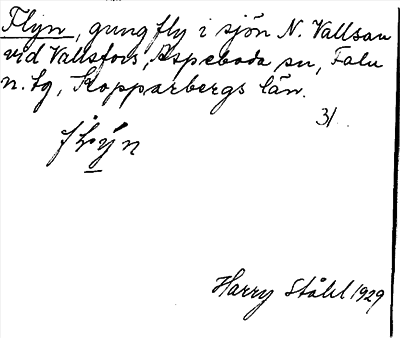 Flyn, gungfly i sjön N. Vallsan
vid Vallsfors, Aspeboda sn, Falu
n. tg, Kopparbergs län.
31
flýn
Harry Ståhl 1929